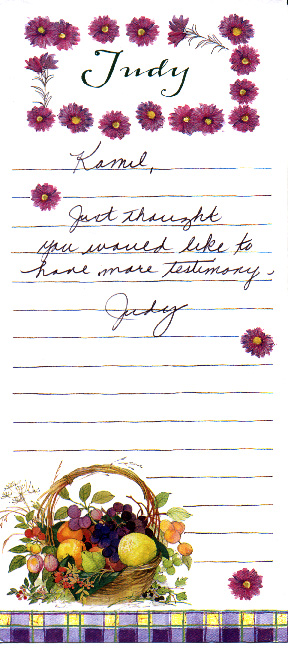 Judy
Kamil,
Just thought
you would like to
have more testimony.
Judy